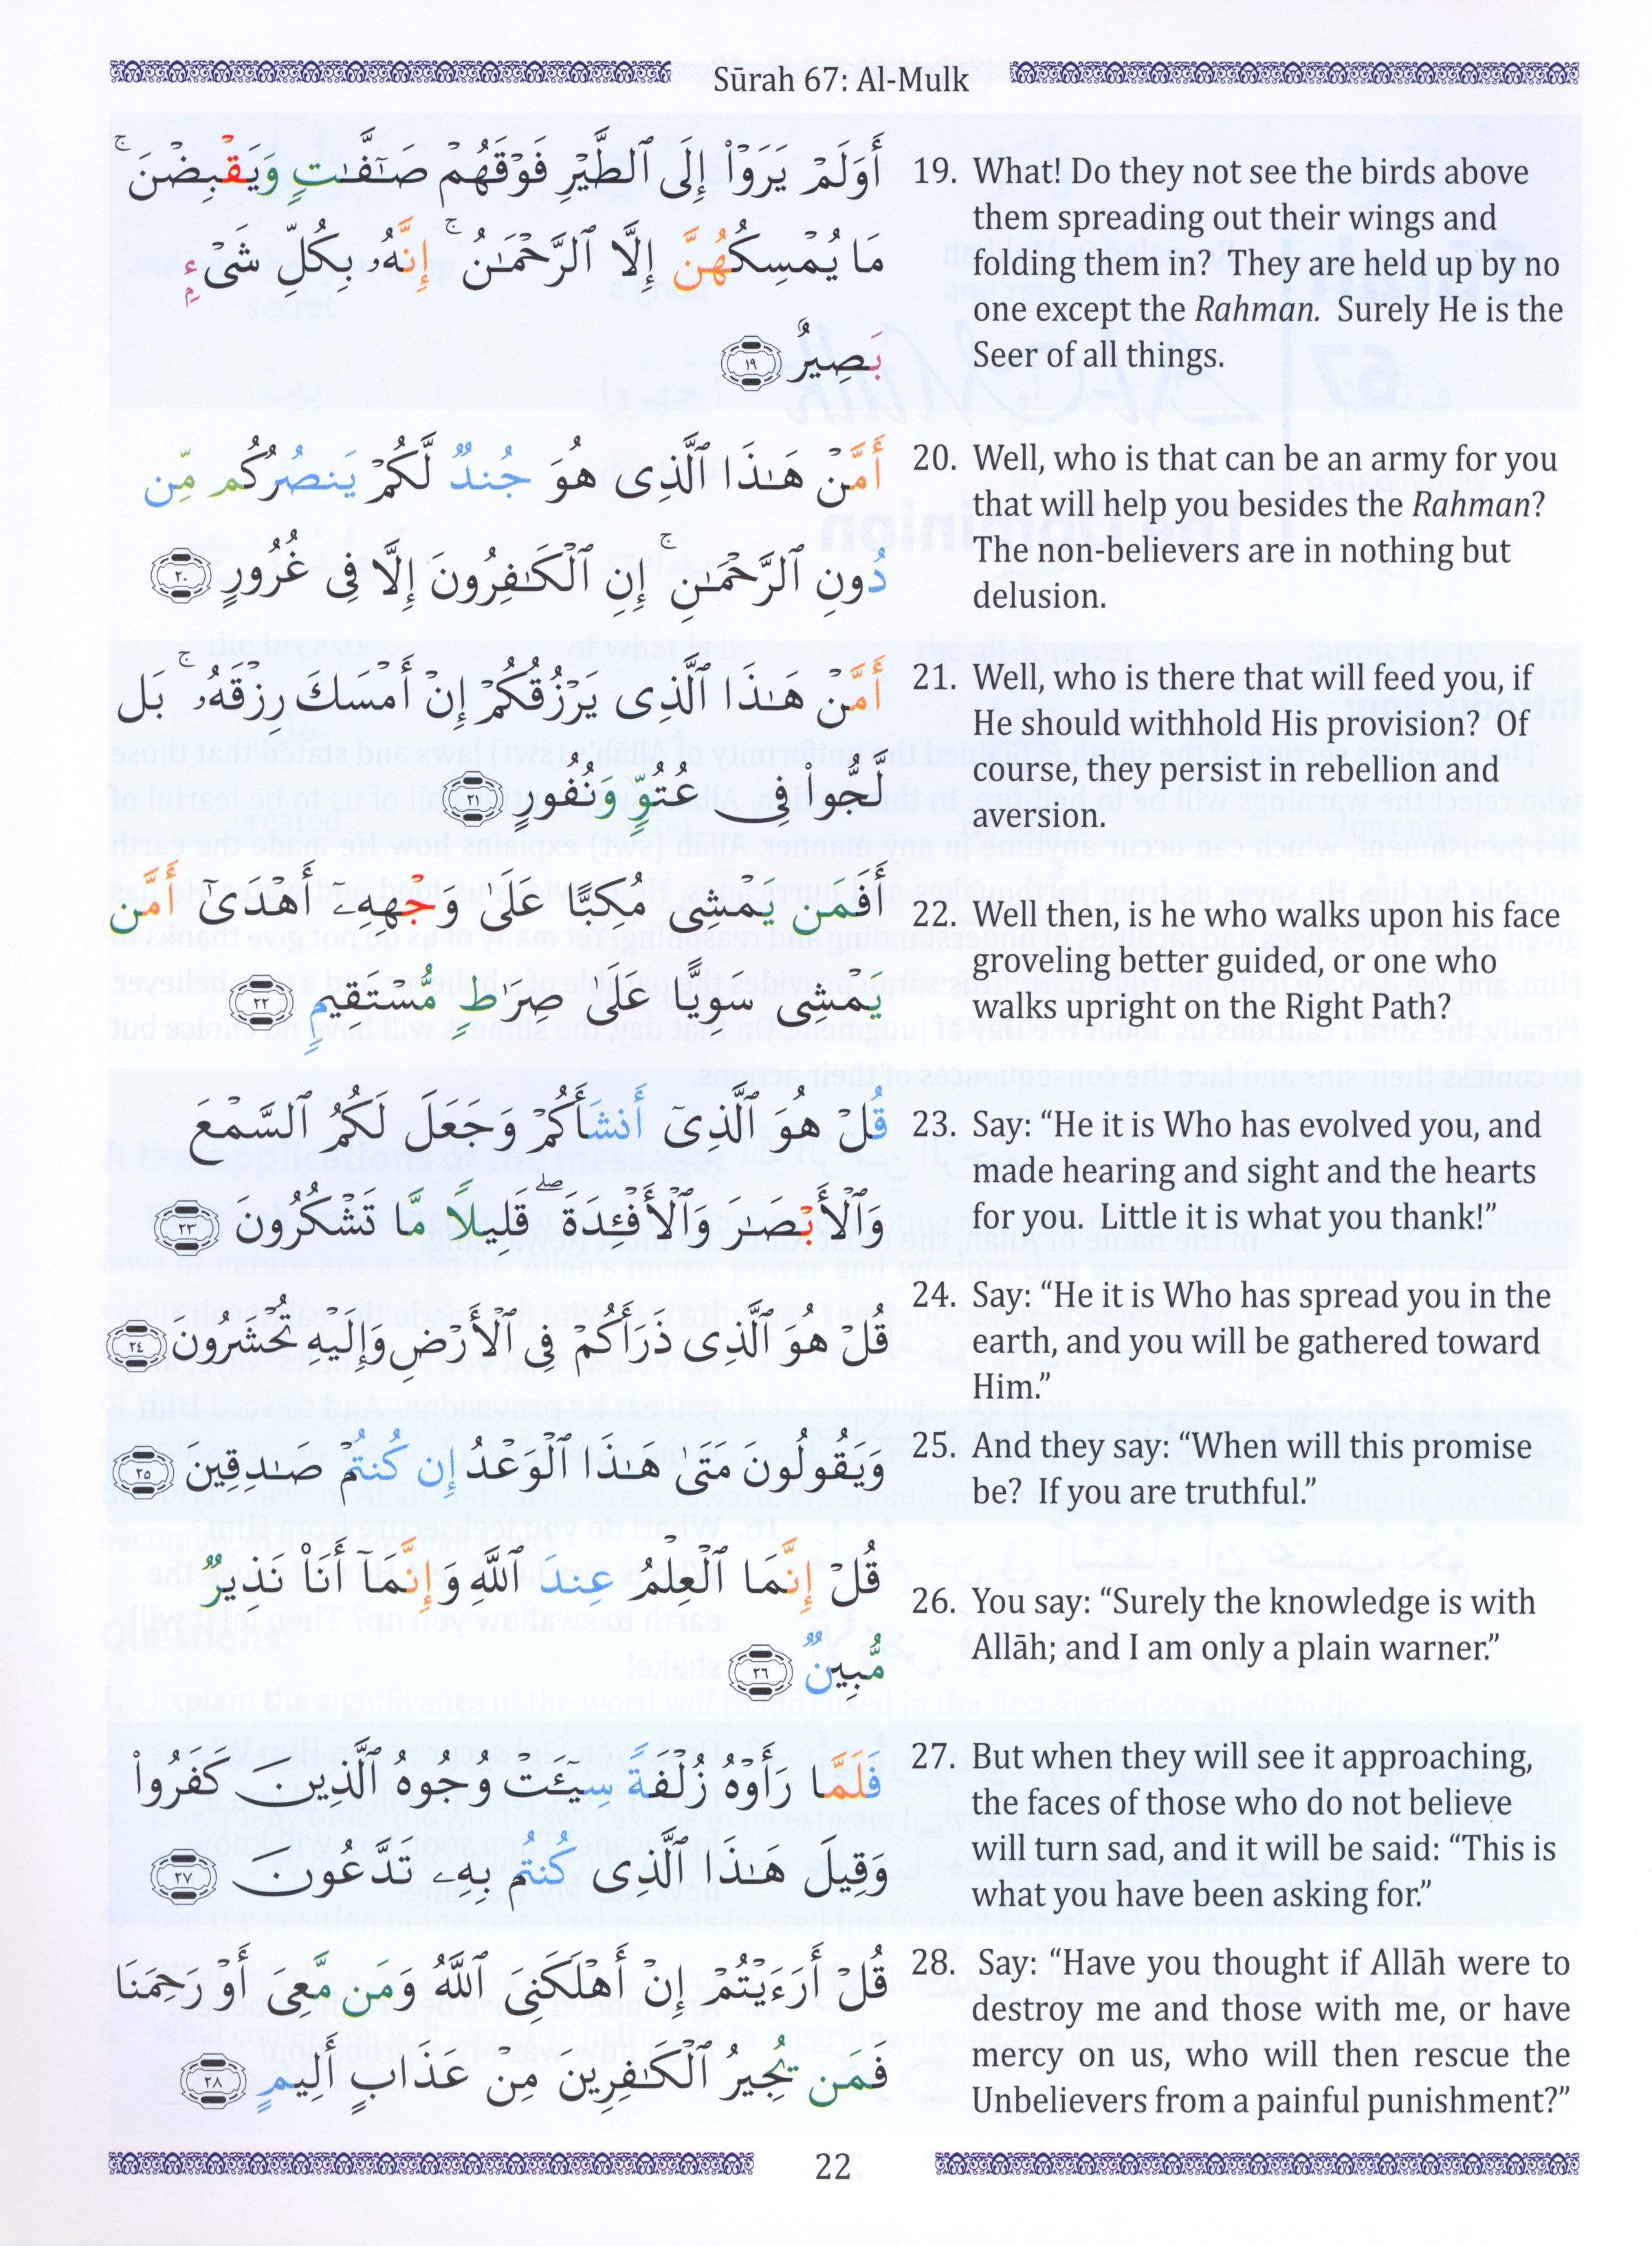 Sūrah 67: Al-Mulk
أَوَلَمْ يَرَوْا۟ إِلَى ٱلطَّيْرِ فَوْقَهُمْ صَـٰٓفَّـٰتٍ وَيَقْبِضْنَ ۚ
مَا يُمْسِكُهُنَّ إِلَّا ٱلرَّحْمَـٰنُ ۚ إِنَّهُۥ بِكُلِّ شَىْءٍۭ
بَصِيرٌ ١٩
19. What! Do they not see the birds above
them spreading out their wings and
folding them in? They are held up by no
one except the Rahman. Surely He is the
Seer of all things.
أَمَّنْ هَـٰذَا ٱلَّذِى هُوَ جُندٌ لَّكُمْ يَنصُرُكُم مِّن
دُونِ ٱلرَّحْمَـٰنِ ۚ إِنِ ٱلْكَـٰفِرُونَ إِلَّا فِى غُرُورٍ ٢٠
20. Well, who is that can be an army for you
that will help you besides the Rahman?
The non-believers are in nothing but
delusion.
أَمَّنْ هَـٰذَا ٱلَّذِى يَرْزُقُكُمْ إِنْ أَمْسَكَ رِزْقَهُۥ ۚ بَل
لَّجُّوا۟ فِى عُتُوٍّ وَنُفُورٍ ٢١
21. Well, who is there that will feed you, if
He should withhold His provision? Of
course, they persist in rebellion and
aversion.
أَفَمَن يَمْشِى مُكِبًّا عَلَىٰ وَجْهِهِۦٓ أَهْدَىٰٓ أَمَّن
يَمْشِى سَوِيًّا عَلَىٰ صِرَٰطٍ مُّسْتَقِيمٍ ٢٢
22. Well then, is he who walks upon his face
groveling better guided, or one who
walks upright on the Right Path?
قُلْ هُوَ ٱلَّذِىٓ أَنشَأَكُمْ وَجَعَلَ لَكُمُ ٱلسَّمْعَ
وَٱلْأَبْصَـٰرَ وَٱلْأَفْـِٔدَةَ ۖ قَلِيلًا مَّا تَشْكُرُونَ ٢٣
23. Say: “He it is Who has evolved you, and
made hearing and sight and the hearts
for you. Little it is what you thank!”
قُلْ هُوَ ٱلَّذِى ذَرَأَكُمْ فِى ٱلْأَرْضِ وَإِلَيْهِ تُحْشَرُونَ ٢٤
24. Say: “He it is Who has spread you in the
earth, and you will be gathered toward
Him.”
وَيَقُولُونَ مَتَىٰ هَـٰذَا ٱلْوَعْدُ إِن كُنتُمْ صَـٰدِقِينَ ٢٥
25. And they say: “When will this promise
be? If you are truthful.”
قُلْ إِنَّمَا ٱلْعِلْمُ عِندَ ٱللَّهِ وَإِنَّمَآ أَنَا۠ نَذِيرٌ
مُّبِينٌ ٢٦
26. You say: “Surely the knowledge is with
Allāh; and I am only a plain warner.”
فَلَمَّا رَأَوْهُ زُلْفَةً سِيٓـَٔتْ وُجُوهُ ٱلَّذِينَ كَفَرُوا۟
وَقِيلَ هَـٰذَا ٱلَّذِى كُنتُم بِهِۦ تَدَّعُونَ ٢٧
27. But when they will see it approaching,
the faces of those who do not believe
will turn sad, and it will be said: “This is
what you have been asking for.”
قُلْ أَرَءَيْتُمْ إِنْ أَهْلَكَنِىَ ٱللَّهُ وَمَن مَّعِىَ أَوْ رَحِمَنَا
فَمَن يُجِيرُ ٱلْكَـٰفِرِينَ مِنْ عَذَابٍ أَلِيمٍ ٢٨
28. Say: “Have you thought if Allāh were to
destroy me and those with me, or have
mercy on us, who will then rescue the
Unbelievers from a painful punishment?”
22